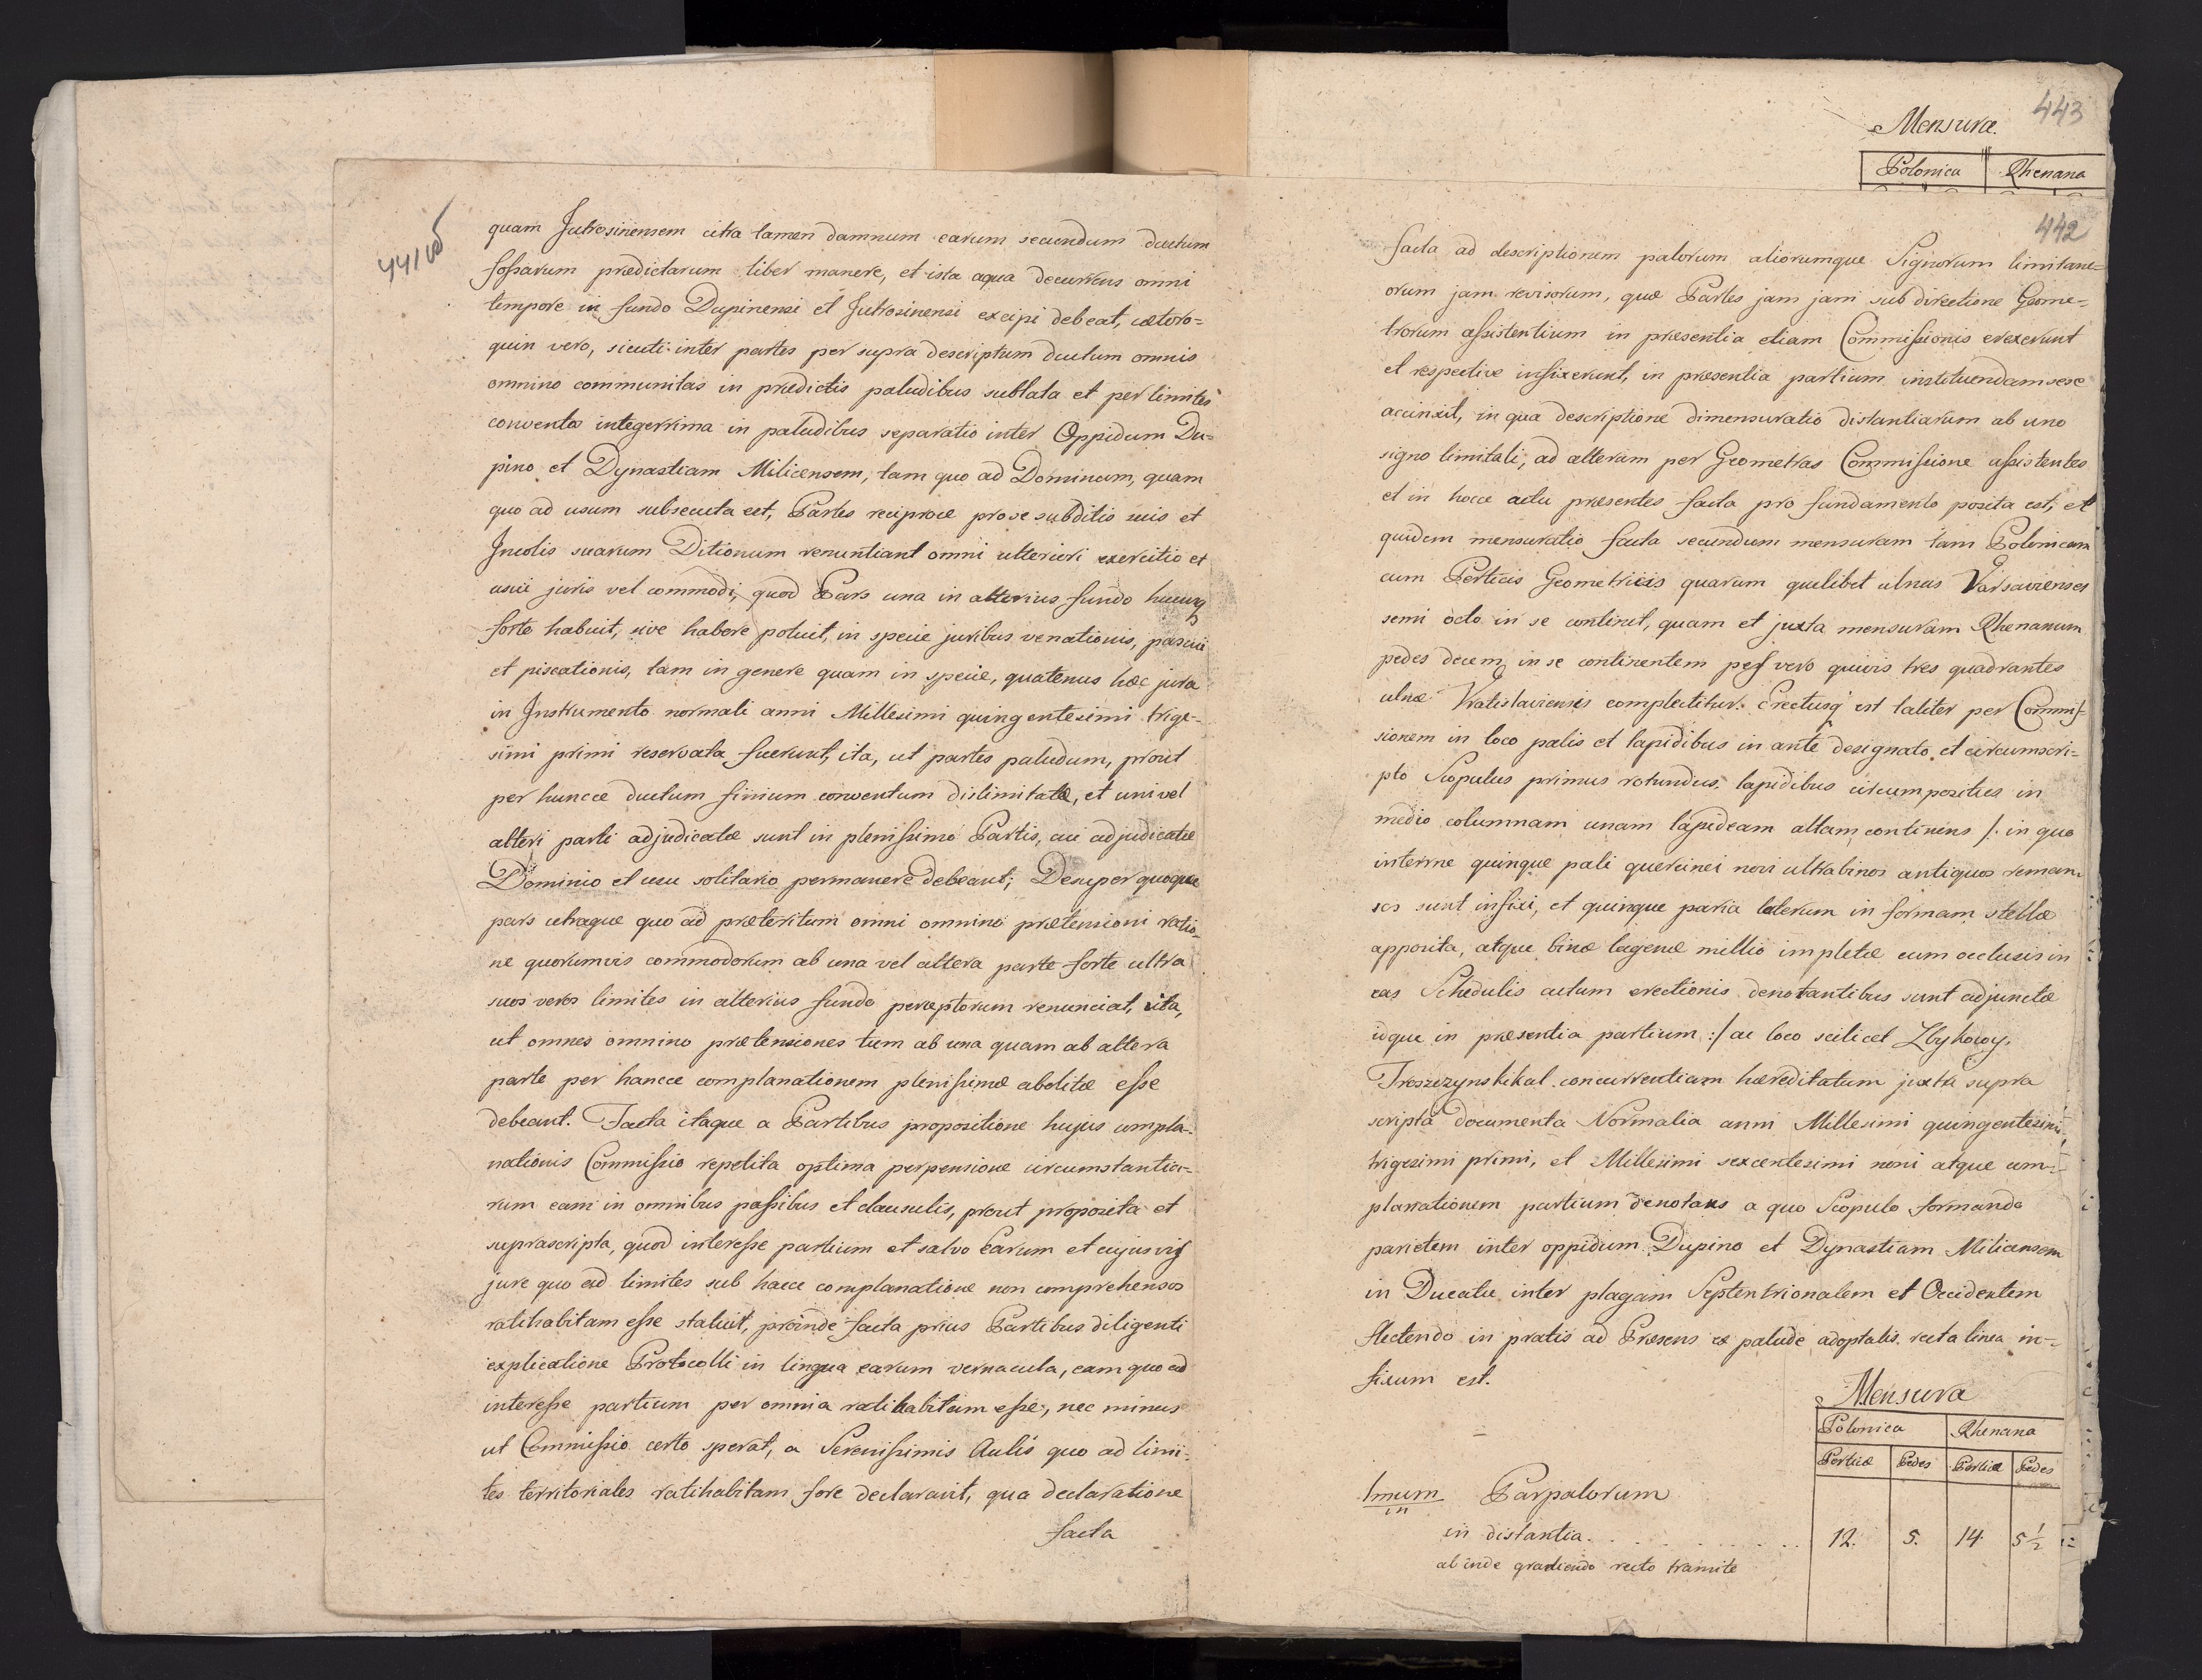 441 v
quam Jutrosinensem citra tamen damnum earum secundum ductum
fossarum prædictarum liber manere, et ista aqua decurrens omni
tempore in fundo Dupinensi et Jutrosinensi excipi debeat, cætero=
quin vero, sicuti inter partes per supra descriptum ductum omnis
omnino communitas in prædictis paludibus sublata et per limites
conventos integerrima in paludibus separatio inter Oppidum Du=
pino et Dynastiam Milicensem, tam quo ad Dominium, quam
quo ad usum subsecuta est, Partes reciproce pro se subditis suis et
Incolis suarum Ditionum renuntiant omni ulteriori exercitio et
usui juris vel commodi, quod Pars una in alterius fundo hucusq
forte habuit, sive habere potuit, in specie juribus venationis, pascui
et piscationis, tam in genere quam in specie, quatenus hæc jura
in Instrumento normali anni Millesimi quingentesimi trige-
simi primi reservata fuerunt, ita, ut partes paludum, prout
per huncce ductum finium conventum dislimitatæ, et uni vel
alteri parti adjudicatæ sunt in plenissimo Partis, cui adjudicatæ
Dominio et usu solitario permanere debeant; Desuper quoque
pars utraque quo ad præteritum omni omnino prætensioni ratio-
ne quorumvis commodorum ab una vel altera parte forte ultra
suos veros limites in alterius fundo perceptorum renunciat, ita,
ut omnes omnino prætensiones tum ab una quam ab altera
parte per hancce complanationem plenissime abolitæ esse
debeant. Facta itaque a Partibus propositione hujus compla-
nationis Commissio repetita optima perpensione circumstantia-
rum eam in omnibus passibus et clausulis, prout proposita et
suprascripta, quod interesse partium et salvo earum et cujusvis
jure quo ad limites sub hacce complanatione non comprehensos
ratihabitam esse statuit, proinde facta prius Partibus diligenti
explicatione Protocolli in lingua earum vernacula, eam quo ad
interesse partium per omnia ratihabitam esse, nec minus
ut Commissio certo sperat, a Serenissimis Aulis quo ad limi-
tes territoriales ratihabitam fore declaravit, qua declaratione
facta
443
Mensuræ.
Polonica Rhenana
442
facta ad descriptionem palorum aliorumque Signorum limitane=
orum jam revisorum, quæ Partes jam jam sub directione Geome=
trorum assistentium in præsentia etiam Commissionis erexerunt
et respective infixerunt, in præsentia partium instituendam sese
accinxit, in qua descriptione dimensuratio distantiarum ab uno
signo limitali, ad alterum per Geometras Commissione assistentes
et in hocce actu præsentes facta pro fundamento posita est, et
quidem mensuratio facta secundum mensuram tam Polonicam
cum Perticis Geometricis quarum quælibet ulnas Varsavienses
semi octo in se continet, quam et juxta mensuram Rhenanum
pedes decem in se continentem pes vero quivis tres quadrantes
ulnæ Vratislaviensis complectitur. Erectusq est taliter per Commis=
sionem in loco palis et lapidibus in ante designato et circumscri=
pto Scopulus primus rotundus lapidibus circumpositus in
medio columnam unam lapideam altam continens /. in quo
interne quinque pali quercinei novi ultra binos antiquos reman-
sos sunt infixi, et quinque paria laterum in formam stellæ
apposita, atque binæ lagenæ millio impletæ cum occlusis in
eas Schedulis actum erectionis denotantibus sunt adjunctæ
idque in præsentia partium :/ ac loco scilicet Zbykowy,
Troszczynskikal concurrentiam hæreditatum juxta supra
scripta documenta Normalia anni Millesimi quingentesimi
trigesimi primi, et Millesimi sexcentesimi noni atque com-
planationem partium denotans a quo Scopulo formando
parietem inter oppidum Dupino et Dynastiam Milicensem
in Ducatu inter plagam Septentrionalem et Occidentem
flectendo in pratis ad Præsens ex palude adoptatis recta linea in-
fixum est.
Mensura
Polonica Rhenana
Perticæ Pedes Perticæ Pedes
1mum Par palorum
in
in distantia . . . . . . . . . . 12. 5. 14. 5 1/2
ab inde gradiendo recto tramite